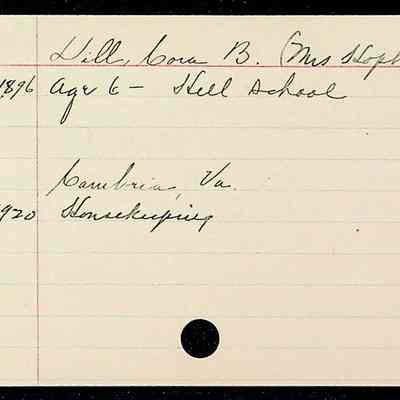 Dill, Cora B. (Mrs Hopk
1896 Age 6 - Hill School
Cambria, Va.
1920 Housekeeping